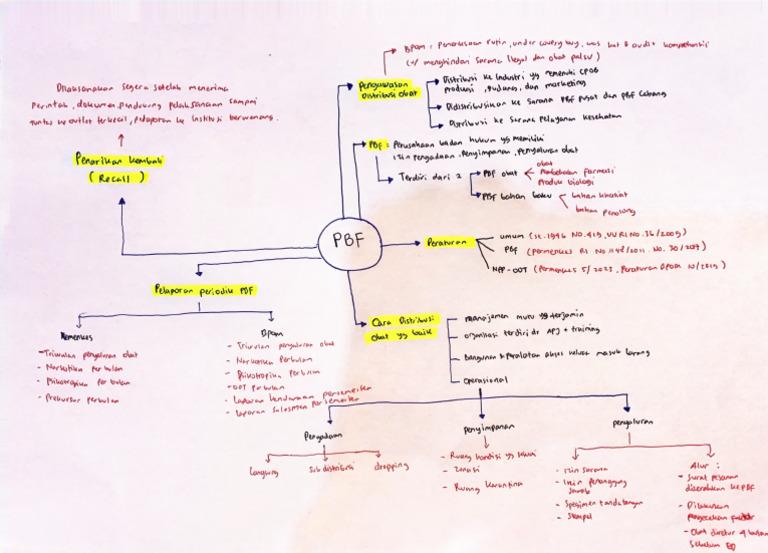 BPOM : Pemeriksaan rutin, under covery buy, was kat & audit komprehensif
(u/ menghindari sarana ilegal dan obat palsu)
Pengawasan
Distribusi obat
Distribusi ke Industri yg memenuhi CPOB
Produksi, gudang, dan marketing
Didistribusikan ke sarana PBF pusat dan PBF Cabang
Distribusi ke Sarana Pelayanan kesehatan
Dilaksanakan segera setelah menerima
Perintah, dokumen pendukung pelaksanaan sampai
tuntas ke outlet terkecil, pelaporan ke institusi berwenang.
Penarikan kembali
(Recall)
PBF : Perusahaan badan hukum yg memiliki
izin pengadaan, penyimpanan, penyaluran obat
Terdiri dari 2
PBF obat
obat
Pembekalan farmasi
Produk biologi
PBF bahan baku
bahan khasiat
bahan penolong
PBF
Peraturan
umum (St. 1946 No. 419, UU RI No. 36/2009)
PBF (Permenkes RI No. 1148/2011. No. 30/2017)
NPP-OOT (Permenkes 5/2023, Peraturan BPOM 10/2019)
Pelaporan periodik PBF
Kemenkes
- Triwulan penyaluran obat
- Narkotika per bulan
- Psikotropika per bulan
- Prekursor perbulan
Bpom
- Triwulan penyaluran obat
- Narkotika perbulan
- Psikotropika perbulan
- OOT perbulan
- Laporan kendaraan persemester
- Laporan Salesmen persemester
Cara Distribusi
obat yg baik
manajemen mutu yg terjamin
organisasi terdiri dr APJ + training
Bangunan & peralatan akses keluar masuk barang
operasional
Pengadaan
Langsung
Sub distribusi
dropping
penyimpanan
- Ruang kondisi yg sesuai
- Zonasi
- Ruang karantina
penyaluran
- Izin sarana
- Izin penanggung
Jawab
- Spesimen tandatangan
- Stempel
Alur :
- Surat pesanan
diserahkan ke PBF
- Dilakukan
pengecekan faktur
- Obat diretur 4 bulan
sebelum ED